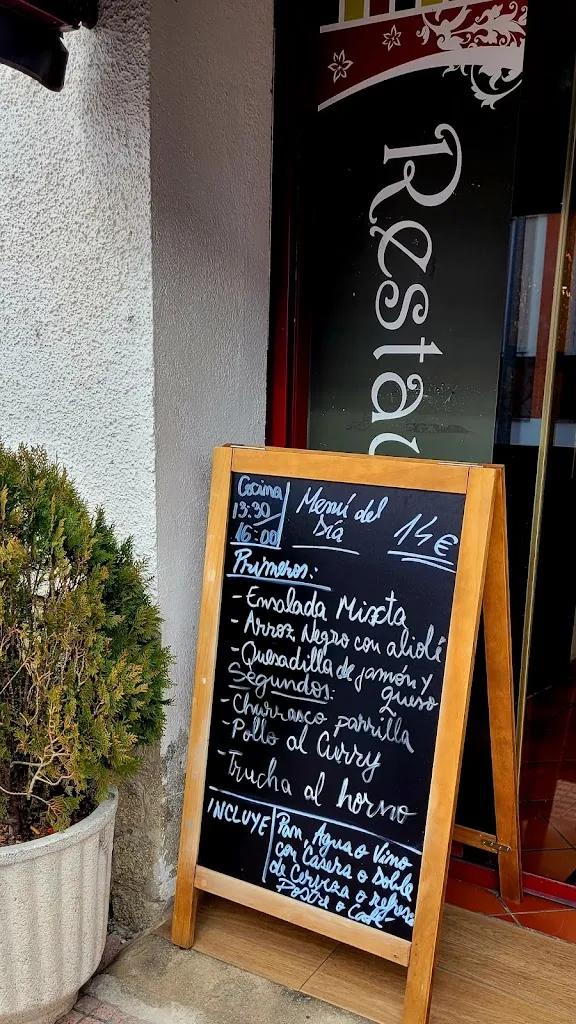 Restau
Cocina
13:30/
16:00
Menú del
Día
14€
Primeros:
- Ensalada Mixta
- Arroz Negro con alioli
- Quesadilla de jamón y
queso
Segundos:
- Churrasco parrilla
- Pollo al Curry
- Trucha al horno
INCLUYE
Pan, Agua o Vino
con Casera o Doble
de Cerveza o refresc
Postre o Café